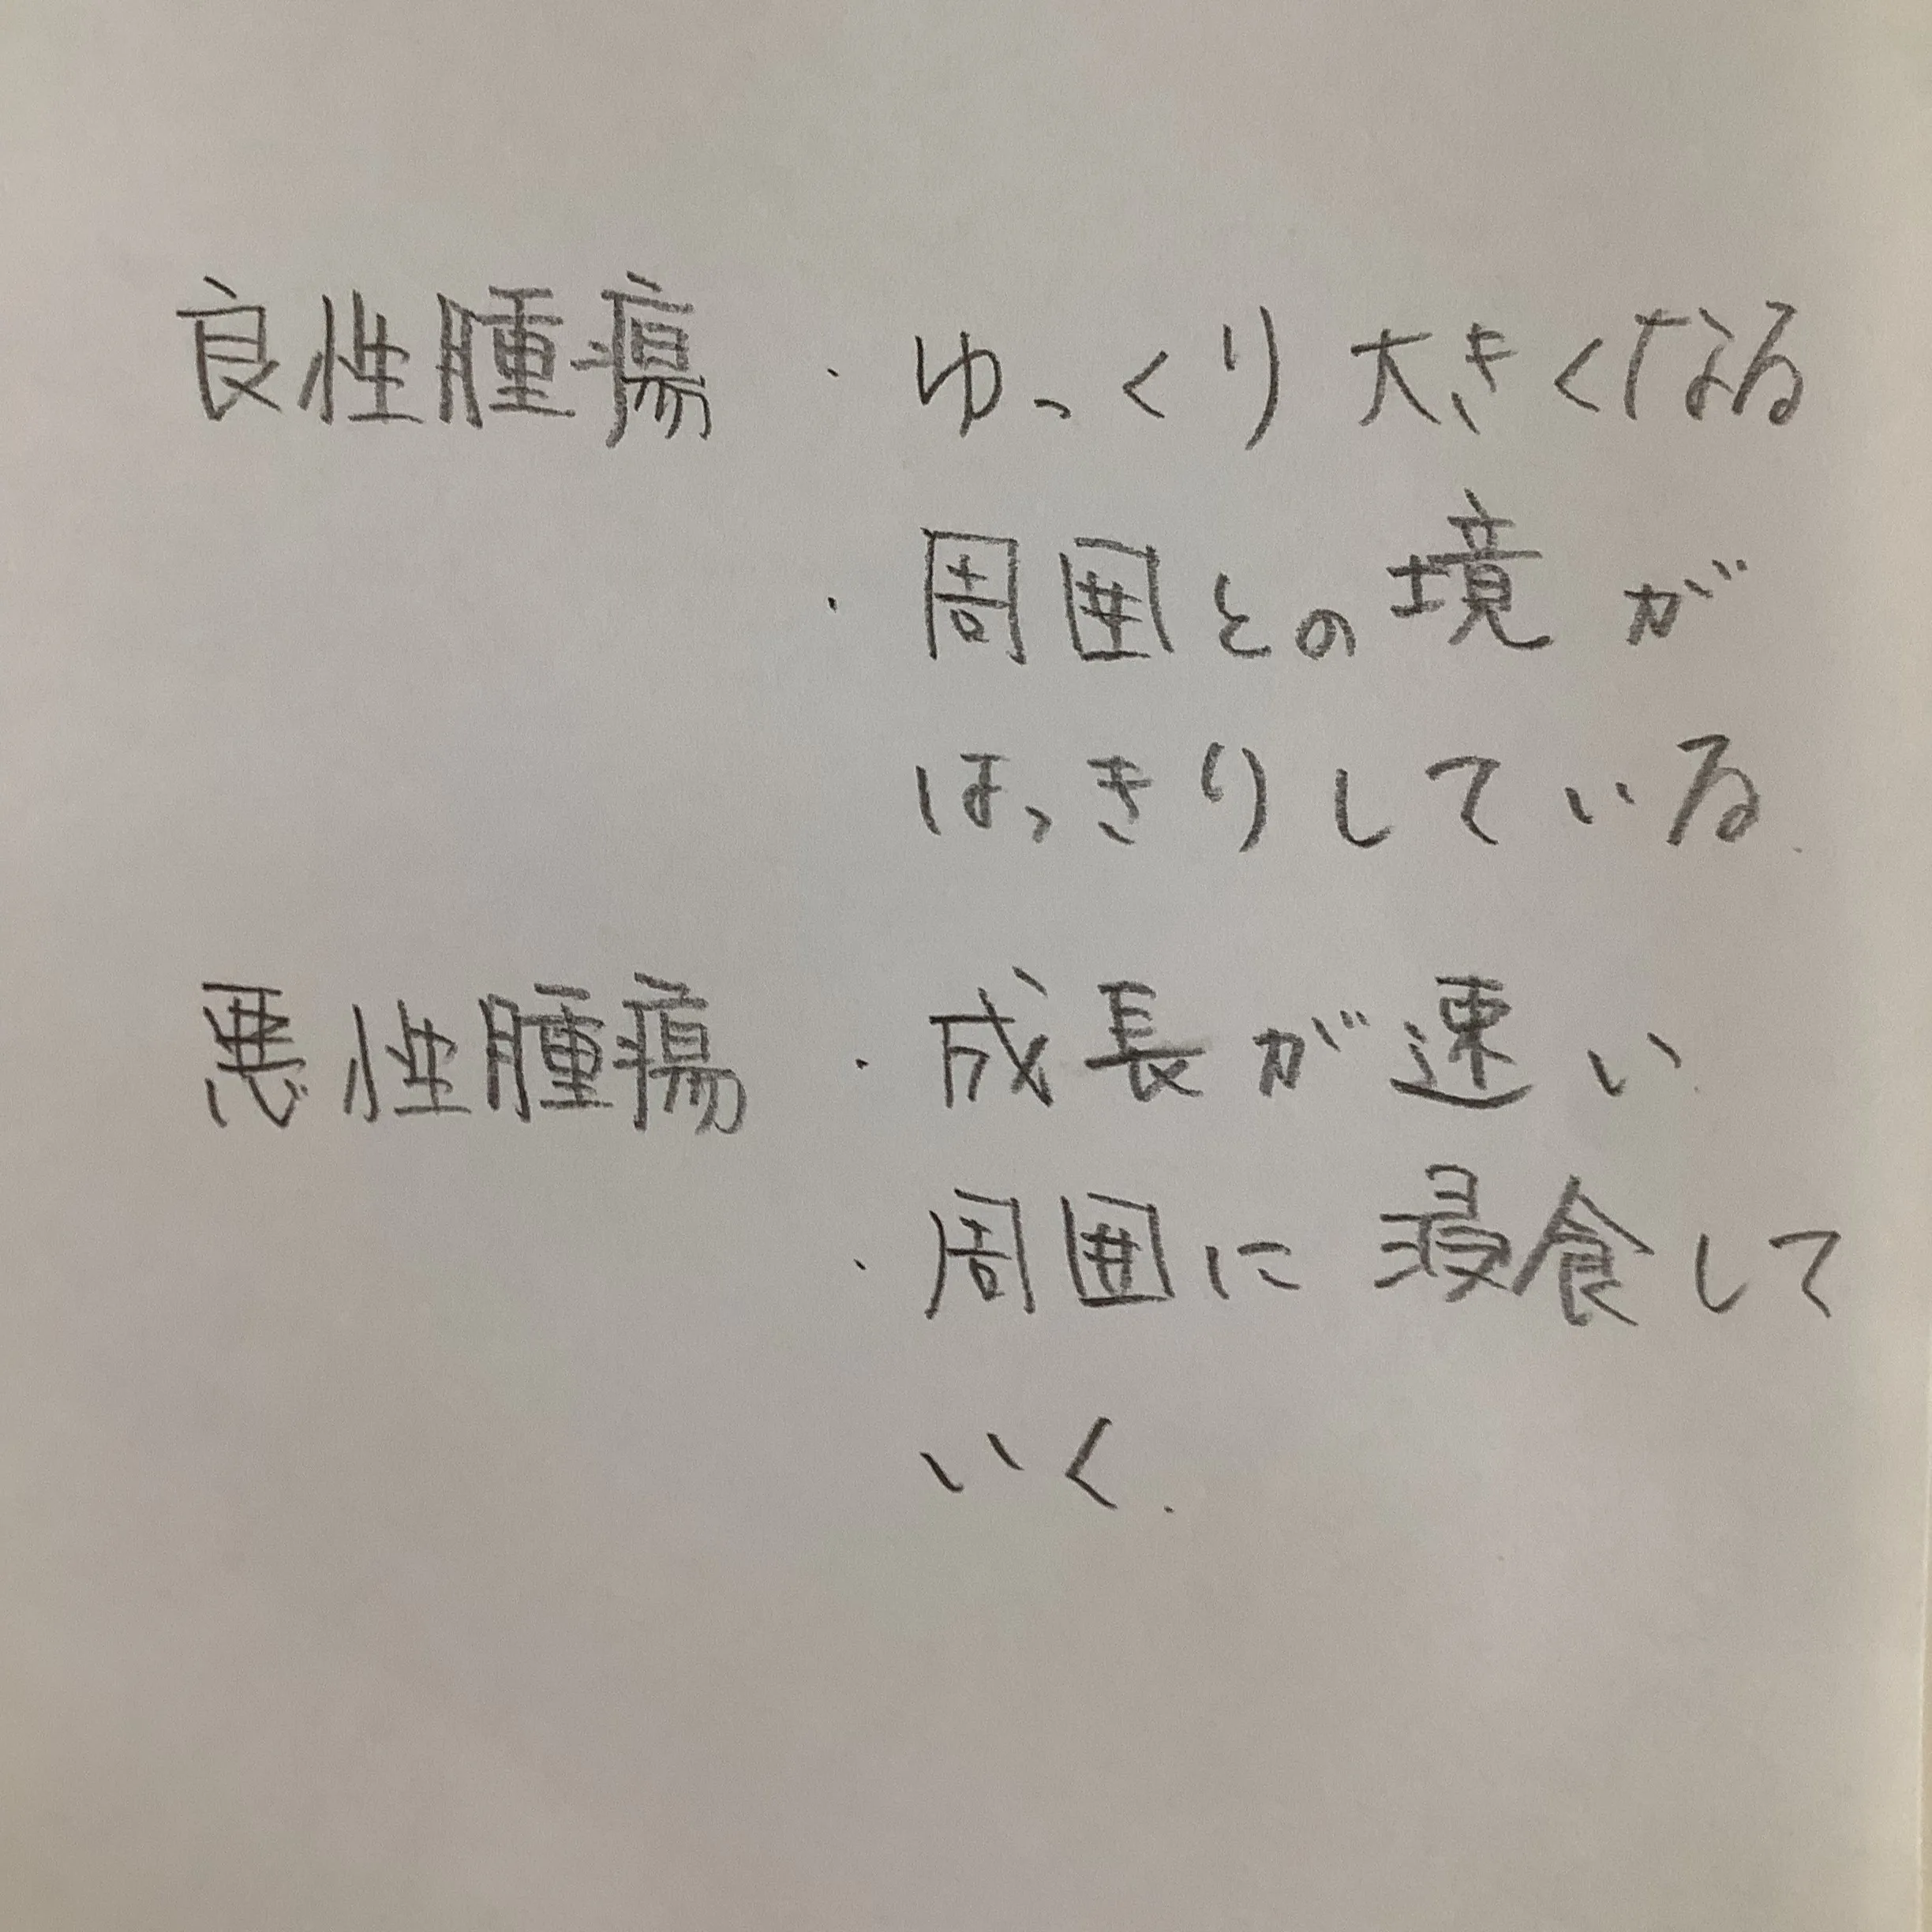 良性腫瘍 ・ゆっくり大きくなる
・周囲との境が
はっきりしている.
悪性腫瘍 ・成長が速い
・周囲に浸食して
いく.